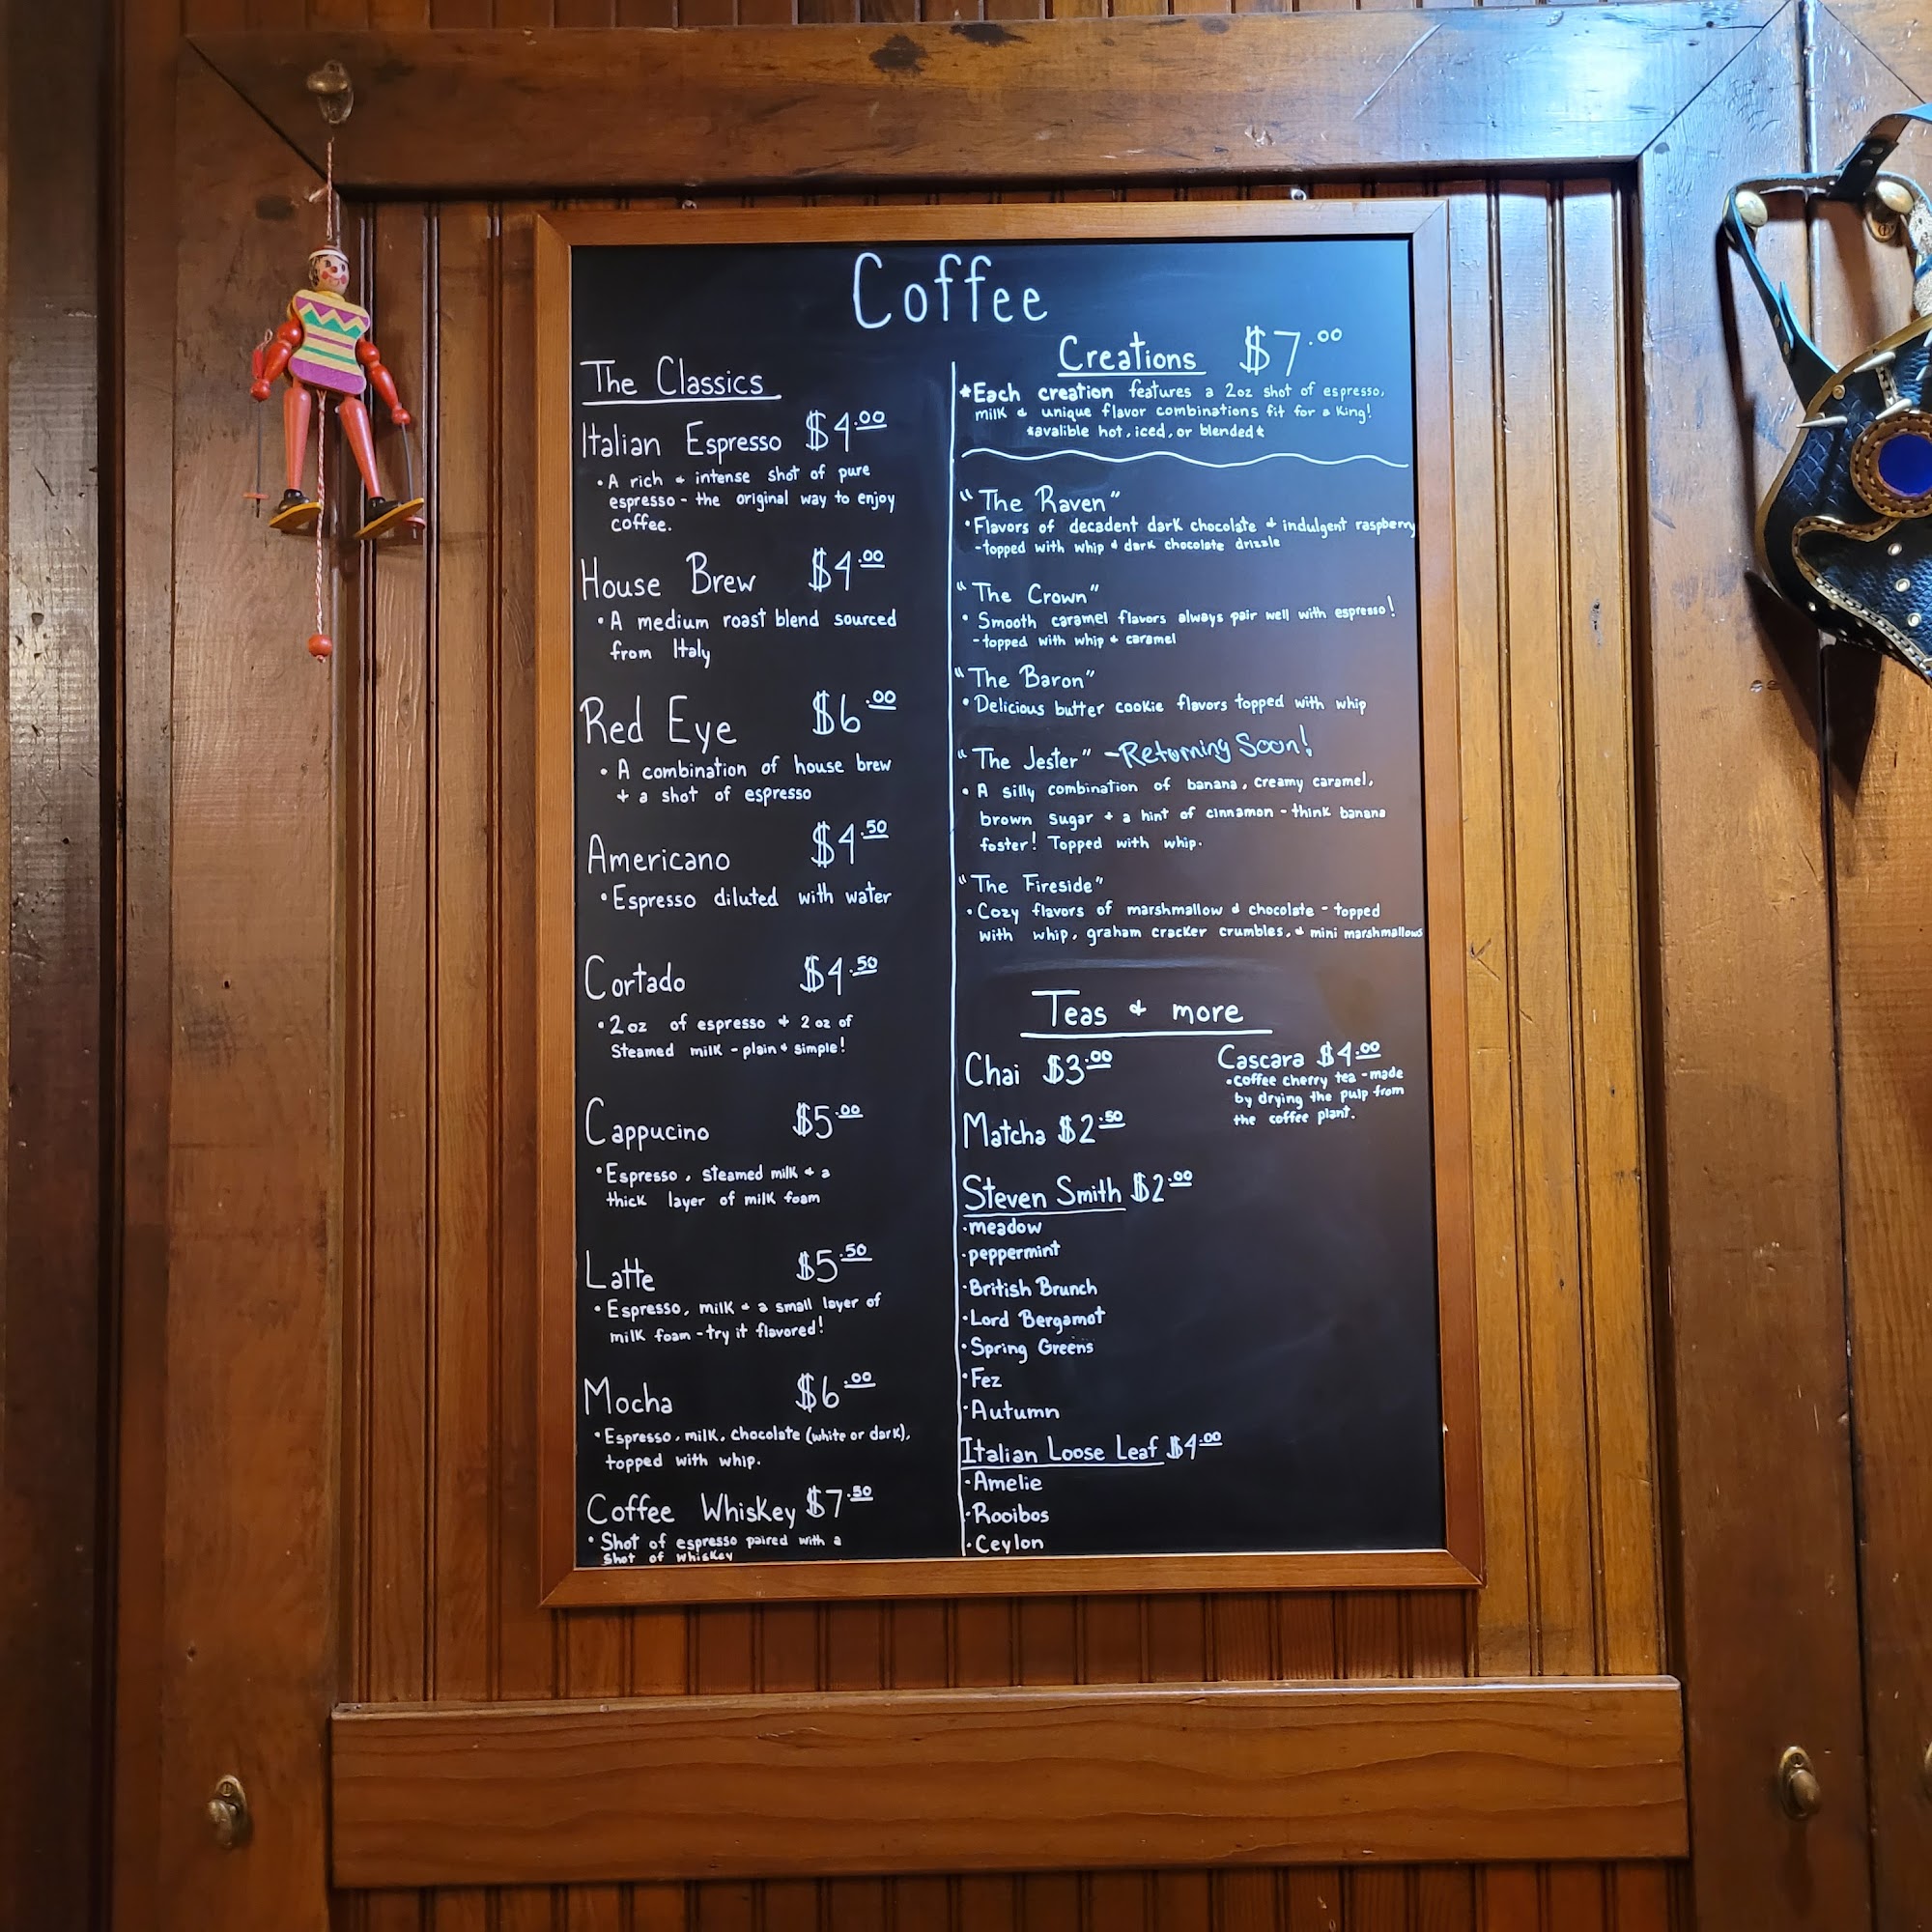 Coffee
The Classics
Italian Espresso $4.00
• A rich & intense shot of pure
espresso - the original way to enjoy
coffee.
House Brew $4.00
• A medium roast blend sourced
from Italy
Red Eye $6.00
• A combination of house brew
+ a shot of espresso
Americano $4.50
• Espresso diluted with water
Cortado $4.50
• 2 oz of espresso + 2 oz of
Steamed milk - plain & simple!
Cappucino $5.00
• Espresso, steamed milk & a
thick layer of milk foam
Latte $5.50
• Espresso, milk & a small layer of
milk foam - try it flavored!
Mocha $6.00
• Espresso, milk, chocolate (white or dark),
topped with whip.
Coffee Whiskey $7.50
• Shot of espresso paired with a
Shot of whiskey
Creations $7.00
*Each creation features a 2oz shot of espresso,
milk & unique flavor combinations fit for a King!
*avalible hot, iced, or blended*
"The Raven"
• Flavors of decadent dark chocolate & indulgent raspberry
- topped with whip & dark chocolate drizzle
"The Crown"
• Smooth caramel flavors always pair well with espresso!
- topped with whip & caramel
"The Baron"
• Delicious butter cookie flavors topped with whip
"The Jester" - Returning Soon!
• A silly combination of banana, creamy caramel,
brown sugar + a hint of cinnamon - think banana
foster! Topped with whip.
"The Fireside"
• Cozy flavors of marshmallow & chocolate - topped
with whip, graham cracker crumbles, & mini marshmallows
Teas & more
Chai $3.00
Matcha $2.50
Cascara $4.00
• coffee cherry tea - made
by drying the pulp from
the coffee plant.
Steven Smith $2.00
• meadow
• peppermint
• British Brunch
• Lord Bergamot
• Spring Greens
• Fez
• Autumn
Italian Loose Leaf $4.00
• Amelie
• Rooibos
• Ceylon